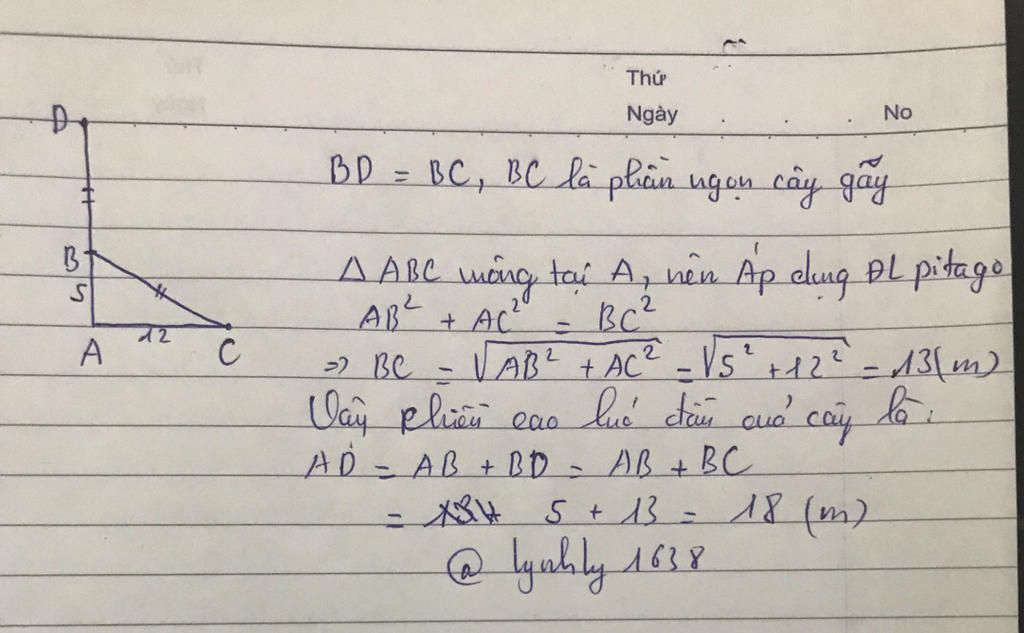 Thứ
Ngày . . No
D
B
5
A
12
C
BD = BC, BC là phần ngọn cây gãy
Δ ABC vuông tại A, nên Áp dụng ĐL pitago
AB² + AC² = BC²
=> BC = √AB² + AC² = √5² + 12² = 13(m)
Vậy chiều cao lúc đầu quả cây là:
AD = AB + BD = AB + BC
= 5 + 13 = 18 (m)
@ lynhly 1638